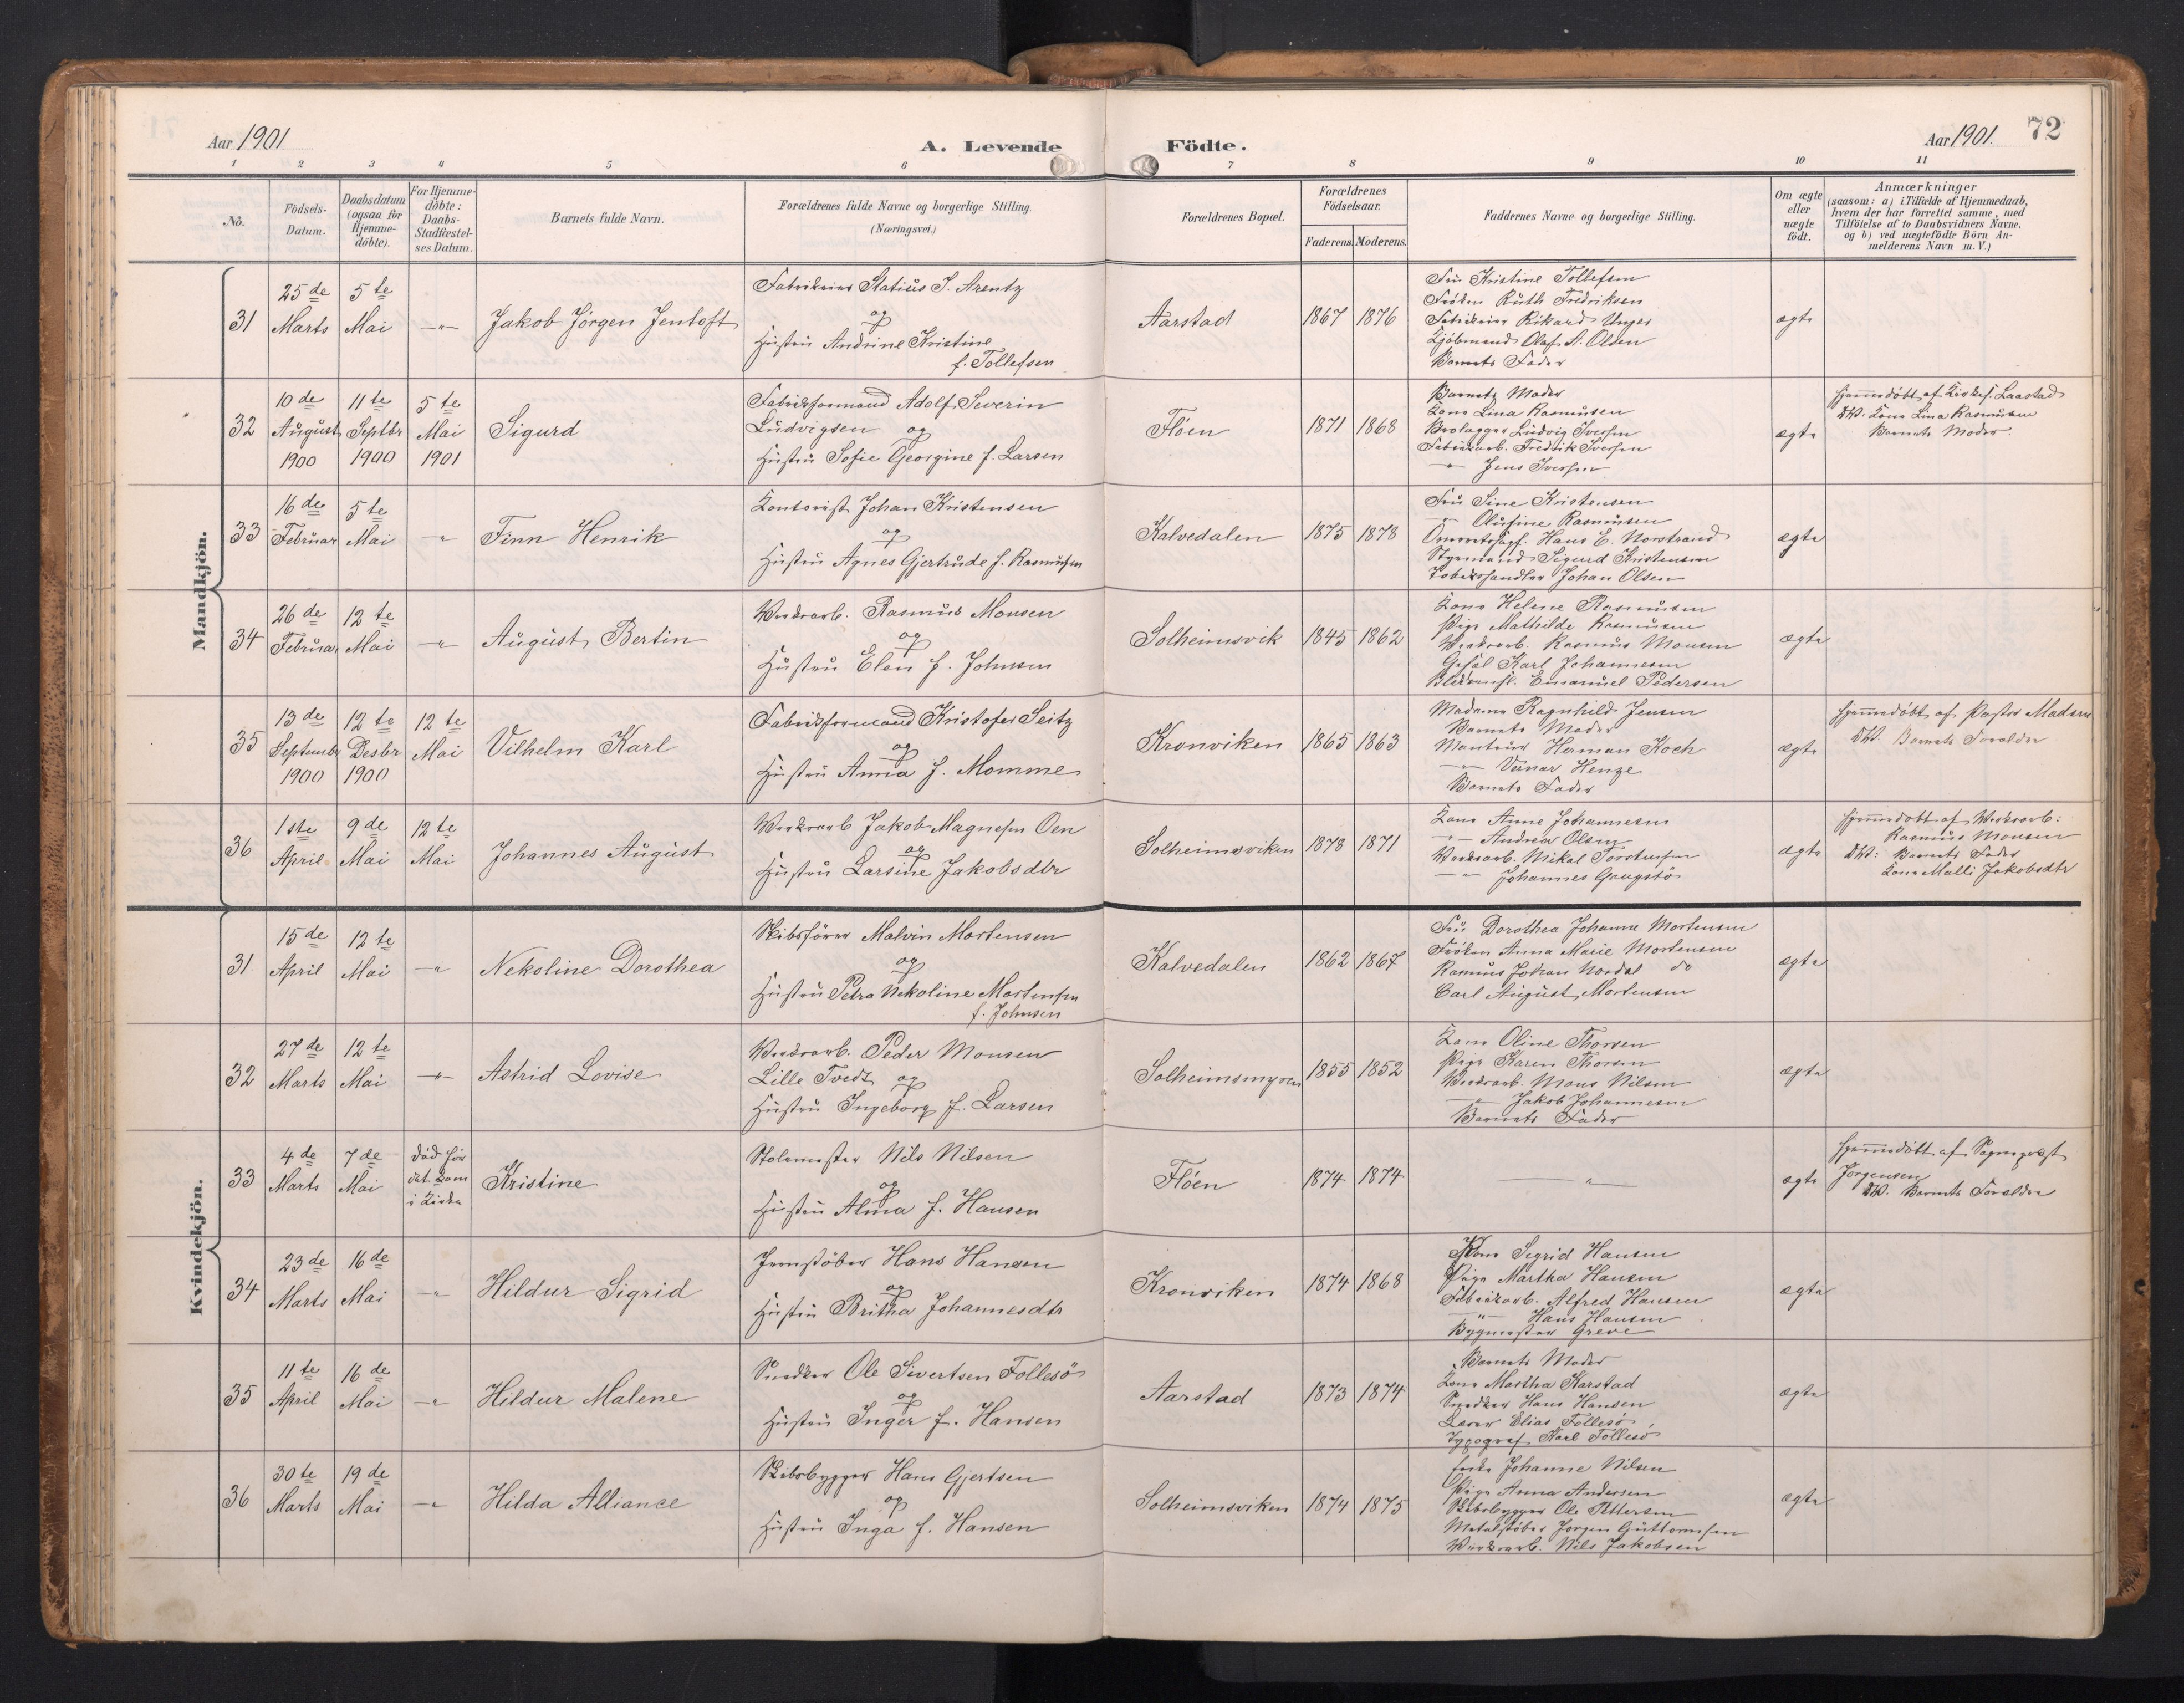 Aar 1901
A. Levende Födte.
Aar 1901.
72
1 2 3 4 5 6 7 8 9 10 11
No.
Födsels-Datum.
Daabsdatum (ogsaa for Hjemme-döbte).
For Hjemme-döbte: Daabs-Stadfæstel-ses Datum.
Barnets fulde Navn.
Forældrenes fulde Navne og borgerlige Stilling. (Næringsvei.)
Forældrenes Bopæl.
Forældrenes Födselsaar.
Faderens. Moderens.
Faddernes Navne og borgerlige Stilling.
Om ægte eller uægte födt.
Anmærkninger
(saasom: a) i Tilfælde af Hjemmedaab,
hvem der har forrettet samme, med
Tilföielse af to Daabsvidners Navne,
og b) ved uægtefödte Börn An-
melderens Navn m. V.)
Mandkjön.
31
25de Marts
5te Mai
-"-
Jakob Jörgen Jentoft
Fabrikeier Statius J. Arentz
og
Hustru Andrine Kristine
f. Tollefsen
Aarstad
1867 1876
Fru Kristine Tollefsen
Fröken Ruth Fredriksen
Fabrikeier Rikard Unger
Kjöbmand Olaf A. Olsen
Barnets Fader
ægte
32
10de August 1900
11te Septbr 1900
5te Mai 1901
Sigurd
Fabrikformand Adolf Severin
Ludvigsen og
Hustru Sofie Georgine f. Larsen
Flöen
1871 1868
Barnets Moder
Kone Lina Rasmusen
Brolægger Ludvig Iversen
Fabrikarb. Fredrik Iversen
-"- Jens Iversen
ægte
Hjemmedöbt af Kirkes. Laastad
DV: Kone Lina Rasmusen
Barnets Moder.
33
16de Februar
5te Mai
-"-
Finn Henrik
Kontorist Johan Kristensen
og
Hustru Agnes Gjertrude f. Rasmusen
Kalvedalen
1875 1878
Fru Sine Kristensen
-"- Olufine Rasmusen
Hans E. Norstrand
Styrmand Sigurd Kristensen
Tobakshandler Johan Olsen
ægte
34
26de Februar
12te Mai
-"-
August Bertin
Verksarb. Rasmus Monsen
og
Hustru Elen f. Johnsen
Solheimsvik
1845 1862
Kone Helene Rasmusen
Pige Mathilde Rasmusen
Verksarb. Rasmus Monsen
Karl Johannesen
Emanuel Pedersen
ægte
35
13de Septembr 1900
12te Desbr 1900
12te Mai
Vilhelm Karl
Fabrikformand Kristofer Seitz
og
Hustru Anna f. Momme
Kronviken
1865 1863
Madame Ragnhild Jensen
Barnets Moder
Montör Herman Koch
-"- Verner Henze
Barnets Fader
ægte
Hjemmedöbt af Pastor Madsen
DV. Barnets Forældre
36
1ste April
9de Mai
12te Mai
Johannes August
Verksarb Jakob Magnesen Oen
og
Hustru Larsine Jakobsdtr
Solheimsviken
1878 1871
Kone Anne Johannesen
-"- Andrea Olsen
Verksarb. Mikal Torstensen
-"- Johannes Gaupsö
ægte
Hjemmedöbt af Verksarb:
Rasmus Monsen
DV: Barnets Fader
Kone Malli Jakobsdtr
Kvindekjön.
31
15de April
12te Mai
-"-
Nekoline Dorothea
Skibsförer Malvin Mortensen
og
Hustru Petra Nekoline Mortensen
f. Johnsen
Kalvedalen
1862 1867
Fru Dorothea Johanne Mortensen
Fröken Anna Marie Mortensen
Rasmus Johan Nordal do
Carl August Mortensen
ægte
32
27de Marts
12te Mai
-"-
Astrid Lovise
Verksarb. Peder Monsen
Lille Tvedt og
Hustru Ingeborg f. Larsen
Solheimsmyren
1855 1852
Kone Oline Thorsen
Pige Karen Thorsen
Verksarb. Mons Nilsen
-"- Jakob Johannesen
Barnets Fader
ægte
33
4de Marts
7de Mai
död för det kom i Kirken
Kristine
Stolemester Nils Nilsen
og
Hustru Alma f. Hansen
Flöen
1874 1874
-"-
ægte
Hjemmedöbt af Sogneprest
Jörgensen
DV. Barnets Forældre
34
23de Marts
16de Mai
-"-
Hildur Sigrid
Jernstöber Hans Hansen
og
Hustru Britha Johannesdtr
Kronviken
1874 1868
Kone Segrid Hansen
Pige Martha Hansen
Fabrikarb. Alfred Hansen
-"- Hans Hansen
Bygmester Greve
ægte
35
11te April
16de Mai
-"-
Hildur Malene
Snedker Ole Sivertsen Follesö
og
Hustru Inger f. Hansen
Aarstad
1873 1874
Barnets Moder
Kone Martha Karstad
Snedker Hans Hansen
Lærer Elias Follesö
Typograf Karl Follesö
ægte
36
30te Marts
19de Mai
-"-
Hilda Alliance
Skibsbygger Hans Gjertsen
og
Hustru Inga f. Hansen
Solheimsviken
1874 1875
Enke Johanne Nilsen
Pige Anna Andersen
Skibsbygger Ole Pettersen
Metalstöber Jörgen Guttormsen
Verksarb. Nils Jakobsen
ægte